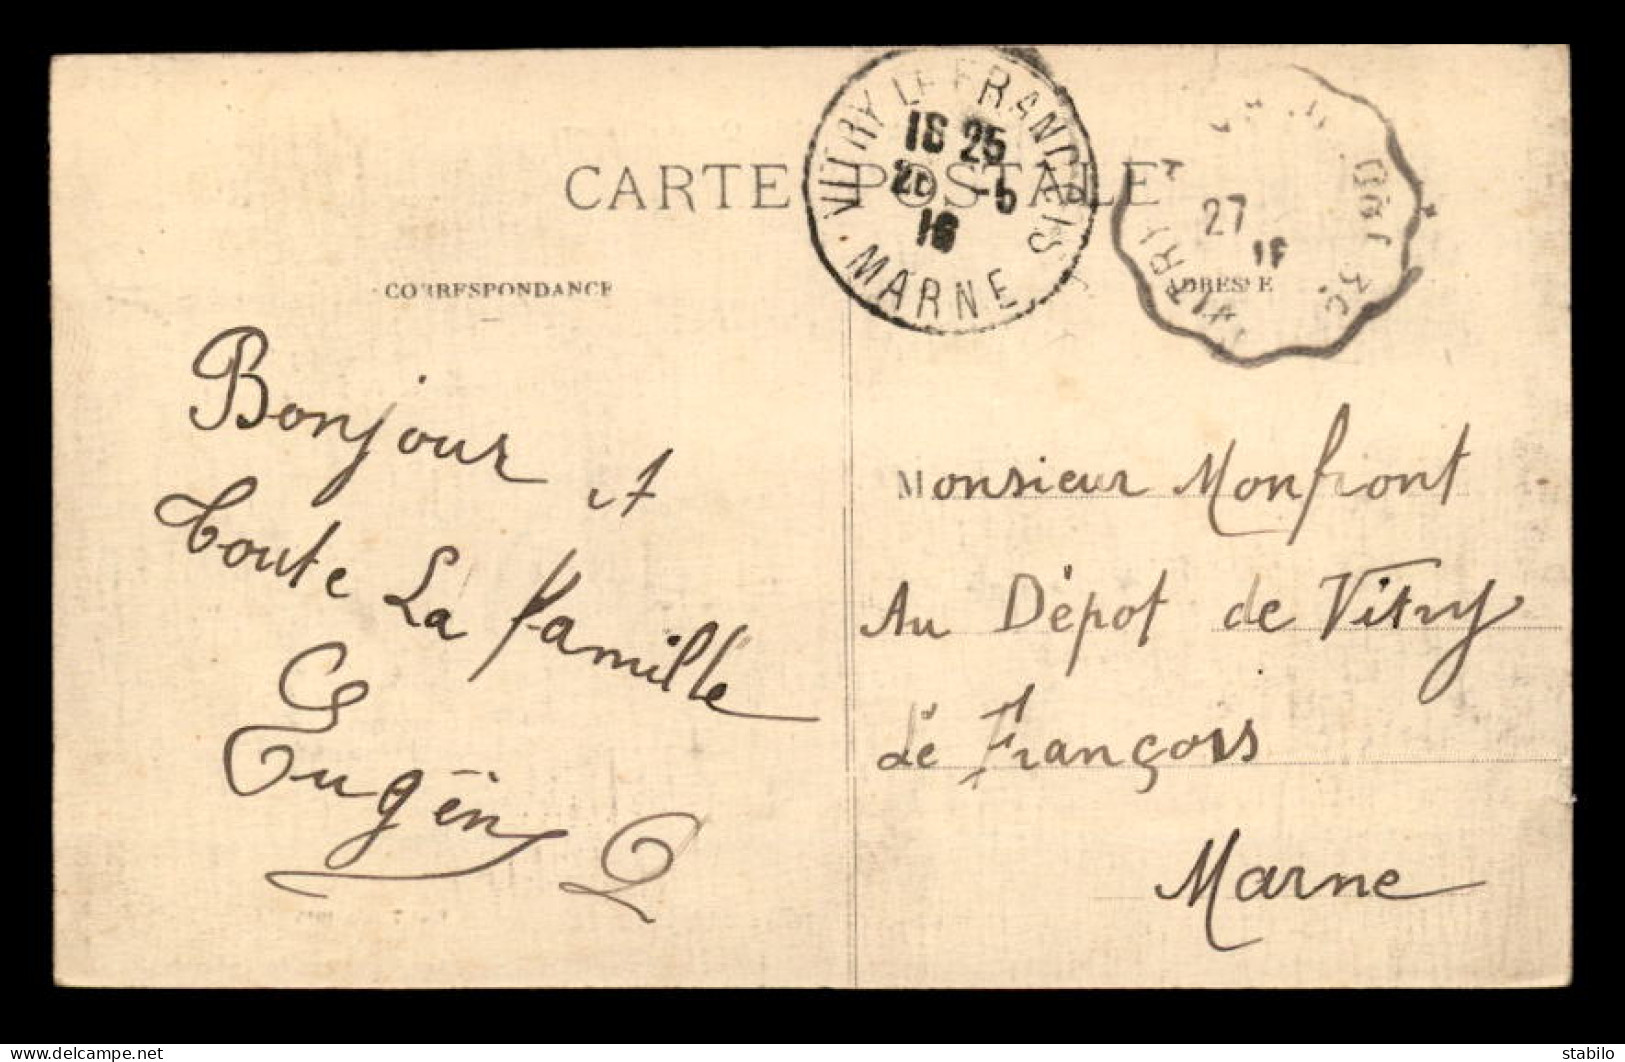 CARTE POSTALE
VITRY LE FRANÇOIS
16 25
-5
16
MARNE
27
CORRESPONDANCE
ADRESSE
Bonjour A
toute La famille
Eugèn
Monsieur Monfront
Au Dépot de Vitry
Lé François
Marne
delcampe.net
stabilo